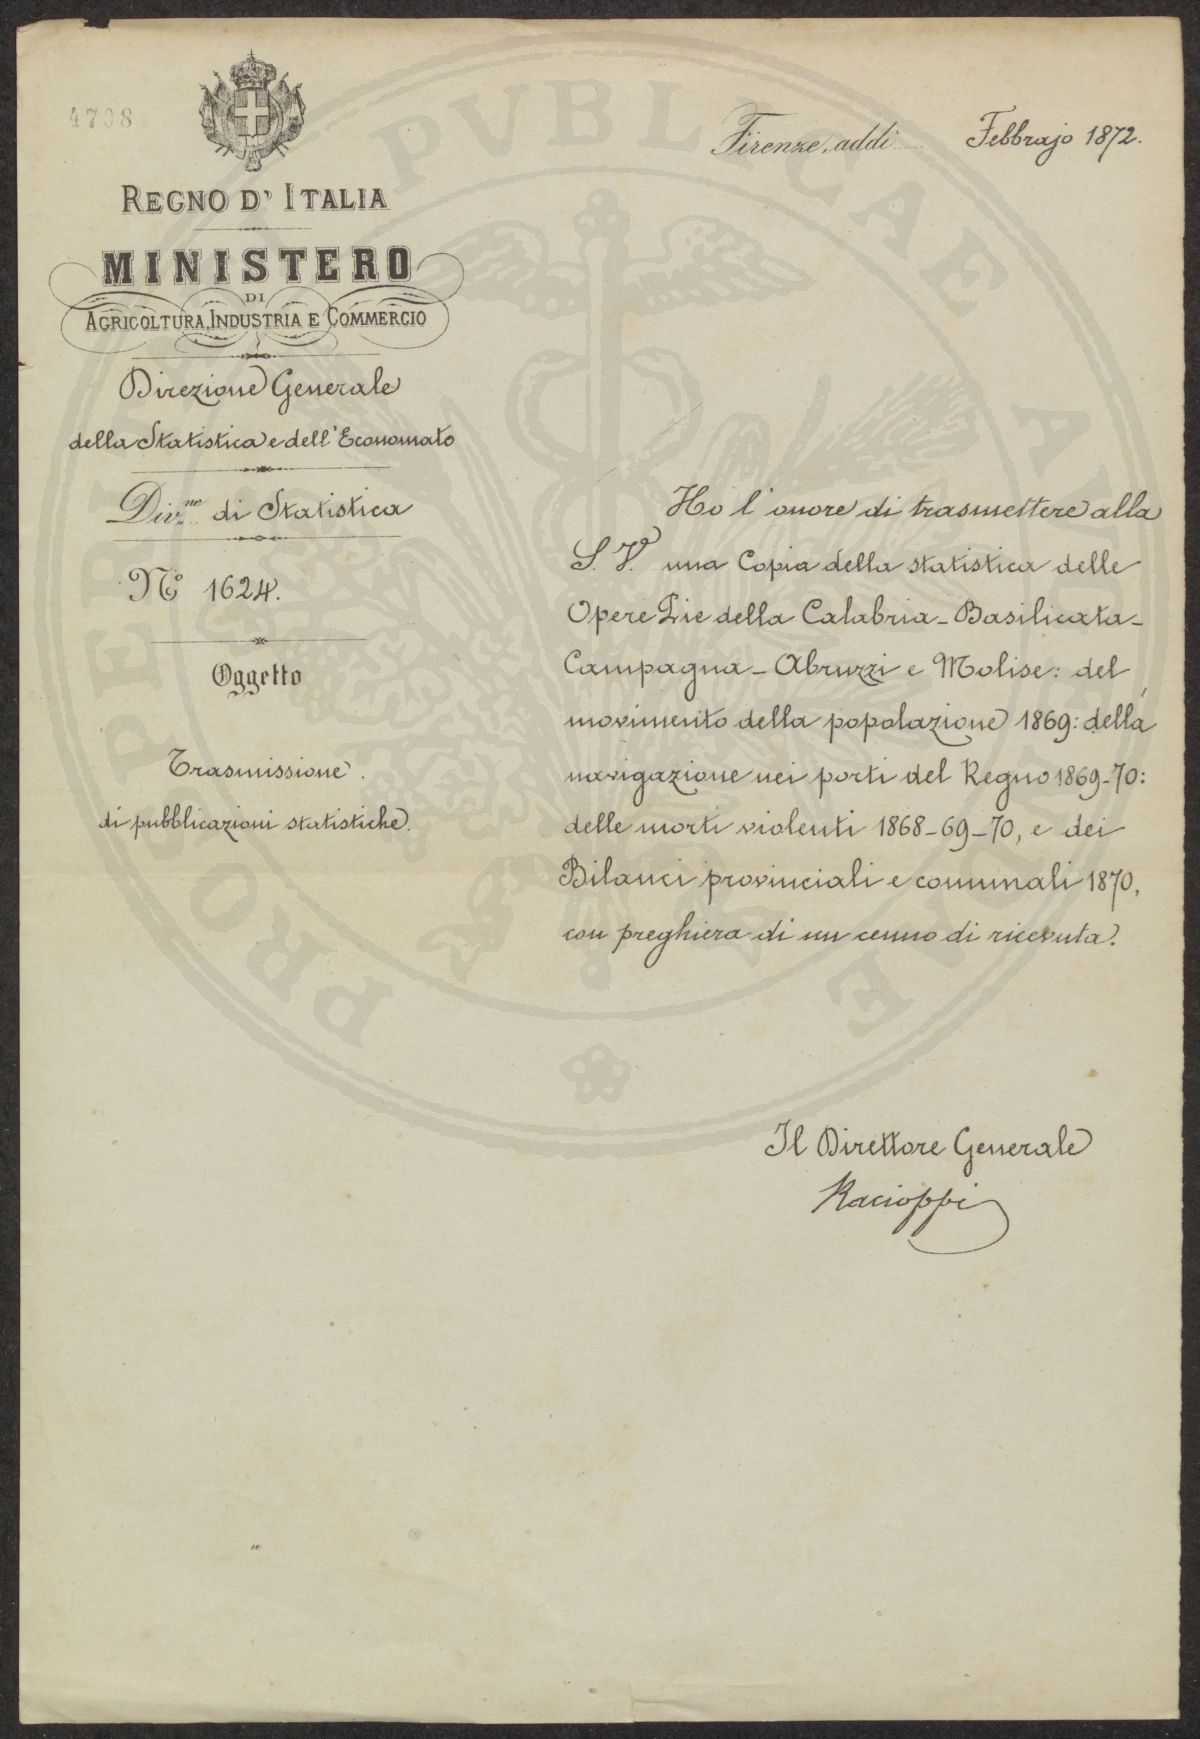 4798
REGNO D' ITALIA
MINISTERO
DI
AGRICOLTURA, INDUSTRIA E COMMERCIO
Direzione Generale
della Statistica e dell' Economato
Div.ne di Statistica
No 1624.
Oggetto
Trasmissione.
di pubblicazioni statistiche.
Firenze, addì Febbrajo 1872.
Ho l'onore di trasmettere alla
S. V. una Copia della statistica delle
Opere Pie della Calabria - Basilicata -
Campagna - Abruzzi e Molise: del
movimento della popolazione 1869: della
navigazione nei porti del Regno 1869-70:
delle morti violenti 1868-69-70, e dei
Bilanci provinciali e comunali 1870,
con preghiera di un cenno di ricevuta.
Il Direttore Generale
Racioppi